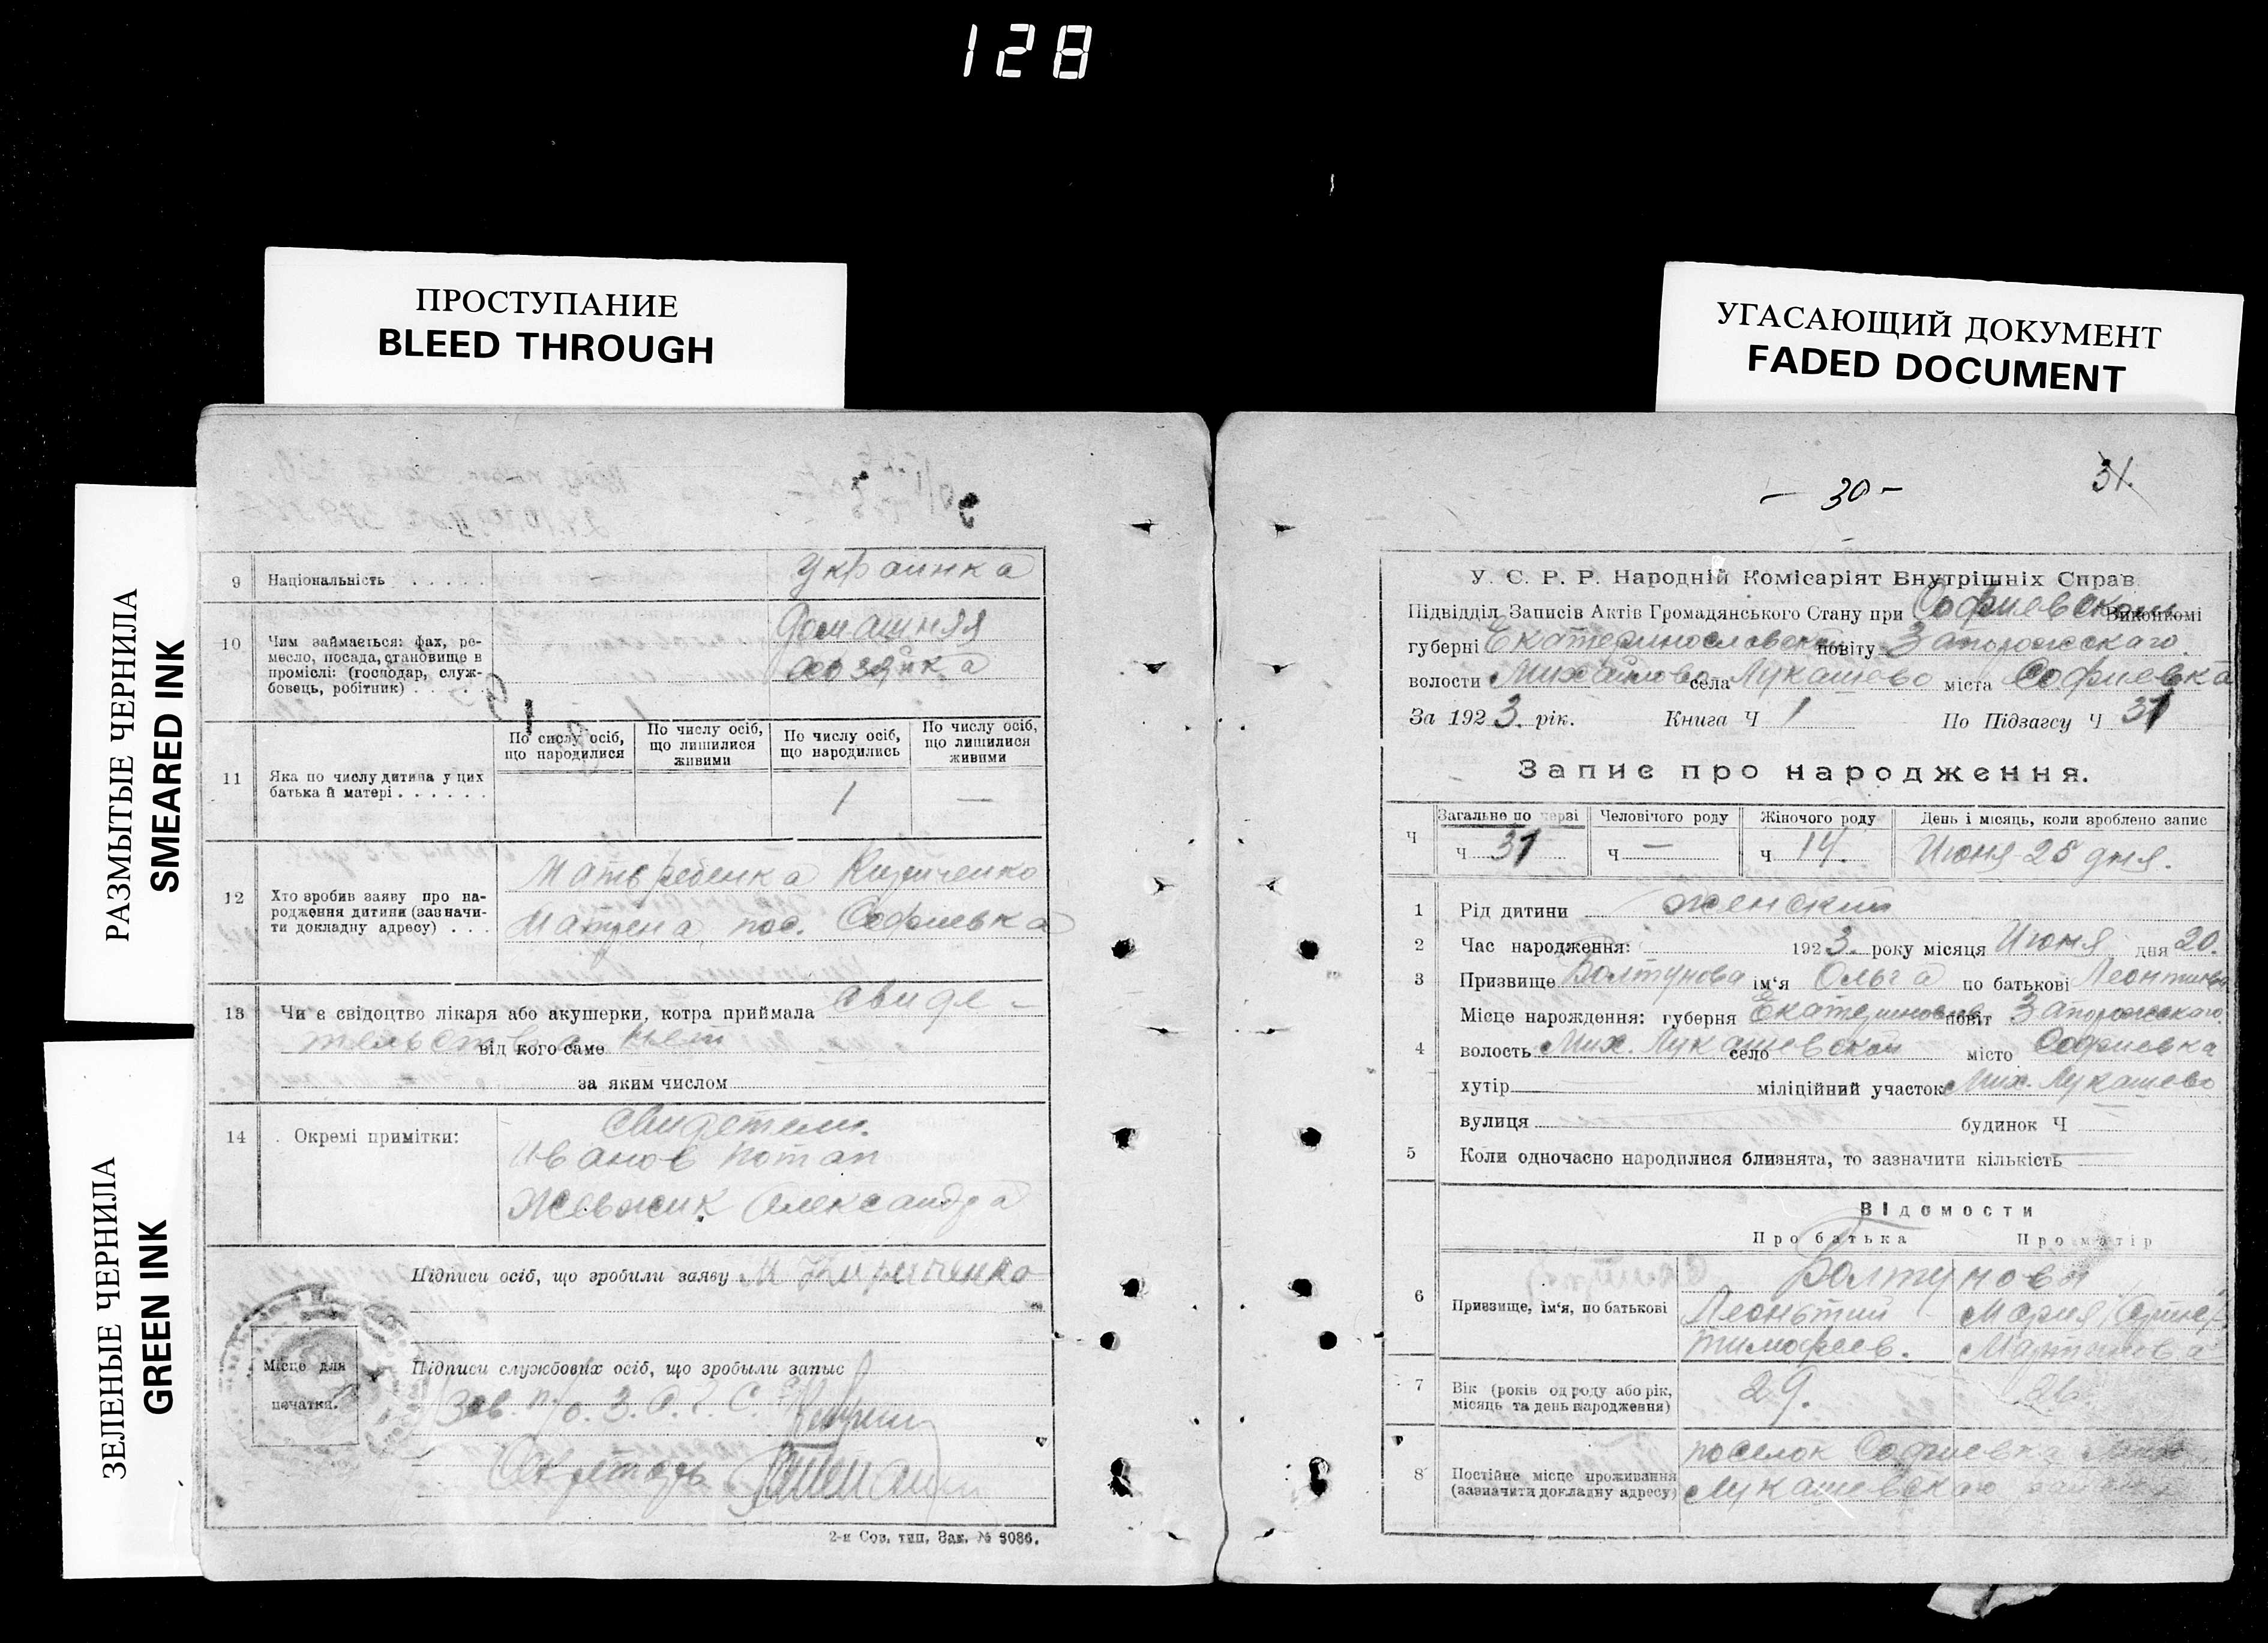 128
ПРОСТУПАНИЕ
BLEED THROUGH
УГАСАЮЩИЙ ДОКУМЕНТ
FADED DOCUMENT
РАЗМЫТЫЕ ЧЕРНИЛА
SMEARED INK
ЗЕЛЕНЫЕ ЧЕРНИЛА
GREEN INK
9 Національність . . . . . Украинка
10 Чим займається: фах, ре-
месло, посада, становище в
проміслі: (господар, служ-
бовець, робітник) . . . . .
Домашняя
хозяйка
11 Яка по числу дитина у цих
батька й матері . . . . . .
По сислу осіб,
що народилися
По числу осіб,
що лишилися
живими
По числу осіб,
що народились
По числу осіб,
що лишилися
живими
1 —
12 Хто зробив заяву про на-
родження дитини (зазначи-
ти докладну адресу) . . .
Мать ребенка Кириченко
Матрена пос. Софиевка
13 Чи є свідоцтво лікаря або акушерки, котра приймала свиде-
тельства від кого саме нет
за яким числом
14 Окремі примітки:
Свидетели.
Иванов Потап
Жевжик Александра
Підписи осіб, що зробили заяву М Кириченко
Підписи службових осіб, що зробыли запыс
Місце для
печатки.
Зав. п/о. З.А.Г.С.
Секретарь
2-я Соз. тип. Зак. № 3086.
— 30 —
31.
У. С. Р. Р. Народній Комісаріят Внутрішніх Справ
Підвідділ Записів Актів Громадянського Стану при Софиевском Виконкомі
губерні Екатеринославской повіту Запорожскаго.
волости Михайлово села Лукашево міста Софиевка
За 1923. рік. Книга Ч 1 По Підзагсу Ч 31
Запис про народження.
Ч
Загальне по черзі
Ч 31
Человічого роду
Ч —
Жіночого роду
Ч 14.
День і місяць, коли зроблено запис
Июня 25 дня.
1 Рід дитини женский
2 Час народження: 1923. року місяця Июня дня 20.
3 Призвище Болтунова ім'я Ольга по батькові Леонтиева
4 Місце нарождення: губерня Екатеринослав. повіт Запорожскаго
волость Мих. Лукашевской село місто Софиевка
хутір міліційний участок Мих. Лукашево
вулиця будинок Ч —
5 Коли одночасно народилися близнята, то зазначити кількість —
Відомости
Про батька Про матір
6 Призвище, ім'я, по батькові
Болтуновы
Леонтий Мария
Тимофеев. Мартинова
7 Вік (років од роду або рік,
місяць та день народження)
29. 26.
8 Постійне місце проживання
(зазначити докладну адресу)
поселок Софиевка Мих.
Лукашевскаго